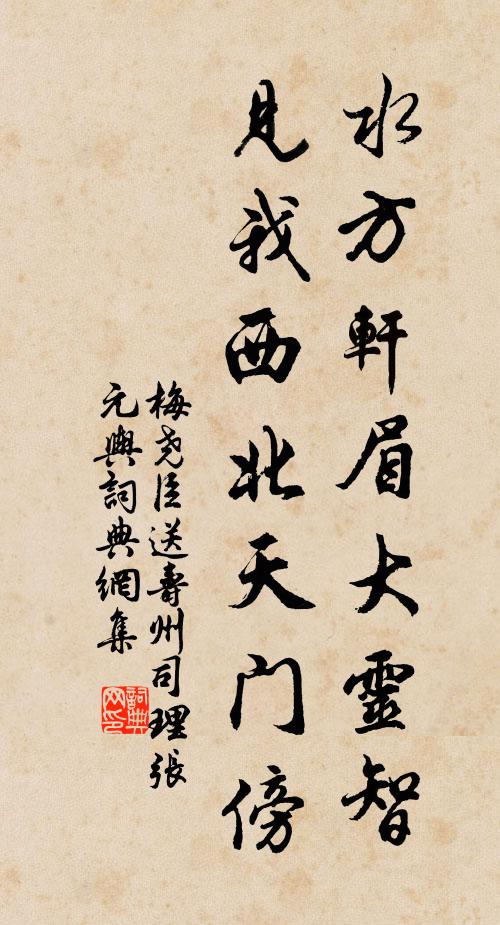 水方軒眉大靈智
見我西北天门傍
梅尧臣送壽州司理張
元輿詞典網集
詞典网印